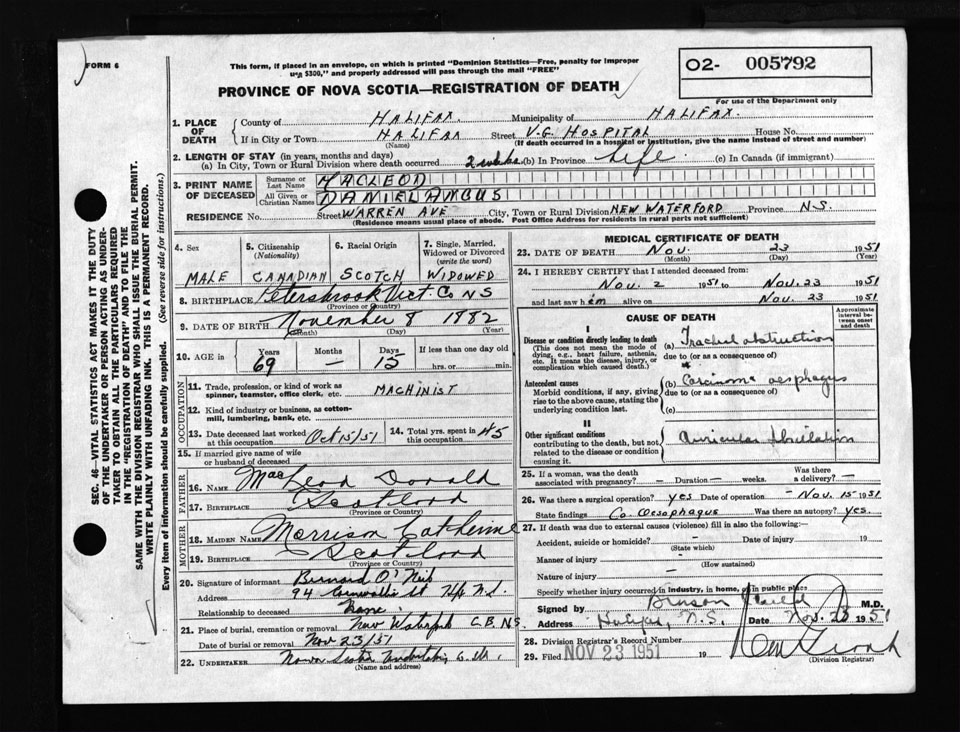 FORM 6
This form, if placed in an envelope, on which is printed "Dominion Statistics—Free, penalty for improper
use $300," and properly addressed will pass through the mail "FREE"
02- 005792
PROVINCE OF NOVA SCOTIA—REGISTRATION OF DEATH
For use of the Department only
1. PLACE OF DEATH
County of HALIFAX. Municipality of HALIFAX.
If in City or Town HALIFAX Street V.G. HOSPITAL House No.
(Name) (If death occurred in a hospital or institution, give the name instead of street and number)
2. LENGTH OF STAY (in years, months and days)
(a) In City, Town or Rural Division where death occurred 2 weeks (b) In Province Life. (c) In Canada (if immigrant)
3. PRINT NAME OF DECEASED
Surname or Last Name MACLEOD
All Given or Christian Names DANIEL ANGUS
RESIDENCE No. Street WARREN AVE City, Town or Rural Division NEW WATERFORD Province N.S.
(Residence means usual place of abode. Post Office Address for residents in rural parts not sufficient)
4. Sex
MALE
5. Citizenship (Nationality)
CANADIAN
6. Racial Origin
SCOTCH
7. Single, Married, Widowed or Divorced (write the word)
WIDOWED
8. BIRTHPLACE Petersbrook Vict. Co NS
(Province or Country)
9. DATE OF BIRTH November 8 1882
(Month) (Day) (Year)
10. AGE in Years 69 Months — Days 15 If less than one day old
hrs. or min.
OCCUPATION
11. Trade, profession, or kind of work as spinner, teamster, office clerk, etc. MACHINIST
12. Kind of industry or business, as cotton-mill, lumbering, bank, etc.
13. Date deceased last worked at this occupation Oct 15/51
14. Total yrs. spent in this occupation 45
15. If married give name of wife or husband of deceased
FATHER
16. NAME MacLeod Donald
17. BIRTHPLACE Scotland
(Province or Country)
MOTHER
18. MAIDEN NAME Morrison Catherine
19. BIRTHPLACE Scotland
(Province or Country)
20. Signature of informant Bernard O'Neil
Address 94 Cornwallis St Hfx N.S.
Relationship to deceased None.
21. Place of burial, cremation or removal New Waterford C.B. N.S.
Date of burial or removal Nov 23/51
22. UNDERTAKER Nova Scotia Undertaking
(Name and address)
MEDICAL CERTIFICATE OF DEATH
23. DATE OF DEATH Nov. 23 1951
(Month) (Day) (Year)
24. I HEREBY CERTIFY that I attended deceased from
Nov. 2 1951 to Nov. 23 1951
and last saw him alive on Nov. 23 1951
CAUSE OF DEATH
Approximate interval between onset and death
I
Disease or condition directly leading to death
(This does not mean the mode of dying, e.g., heart failure, asthenia, etc. It means the disease, injury, or complication which caused death.)
(a) Tracheal obstruction
due to (or as a consequence of)
Antecedent causes
Morbid conditions, if any, giving rise to the above cause, stating the underlying condition last.
(b) Carcinoma oesphagus
due to (or as a consequence of)
(c)
II
Other significant conditions
contributing to the death, but not related to the disease or condition causing it.
Auricular fibrillation
25. If a woman, was the death associated with pregnancy? – Duration – weeks. Was there a delivery? –
26. Was there a surgical operation? yes Date of operation – Nov. 15 1951
State findings Ca. Oesophagus Was there an autopsy? Yes.
27. If death was due to external causes (violence) fill in also the following:—
Accident, suicide or homicide? – Date of injury 19
(State which)
Manner of injury –
(How sustained)
Nature of injury –
Specify whether injury occurred in industry, in home, or in public place
Signed by M.D.
Address Halifax, N.S. Date Nov. 23 1951
28. Division Registrar's Record Number
29. Filed NOV 23 1951 19
(Division Registrar)
SEC. 46 VITAL STATISTICS ACT MAKES IT THE DUTY
OF THE UNDERTAKER OR PERSON ACTING AS UNDER-
TAKER TO OBTAIN ALL THE PARTICULARS REQUIRED
IN THE "REGISTRATION OF DEATH" AND TO FILE THE
SAME WITH THE DIVISION REGISTRAR WHO SHALL ISSUE THE BURIAL PERMIT.
WRITE PLAINLY WITH UNFADING INK. THIS IS A PERMANENT RECORD.
Every item of information should be carefully supplied. (See reverse side for instructions.)